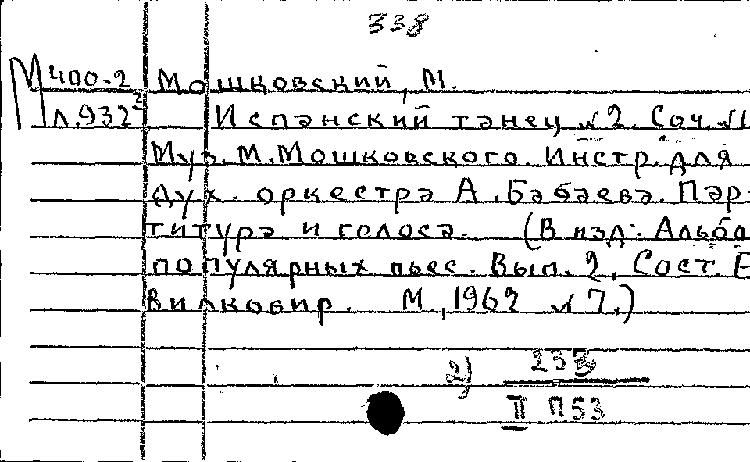 338
М 400-2 Мошковский, М.
Л.932² Испанский танец №2. Соч.
Муз. М. Мошковского. Инстр. для
дух. оркестра А. Бабаева. Пар-
титура и голоса. (В изд: Альбо
популярных пьес. Вып. 2. Сост. Е
Вилковир. М, 1962 № 7.)
2) 233
II П53